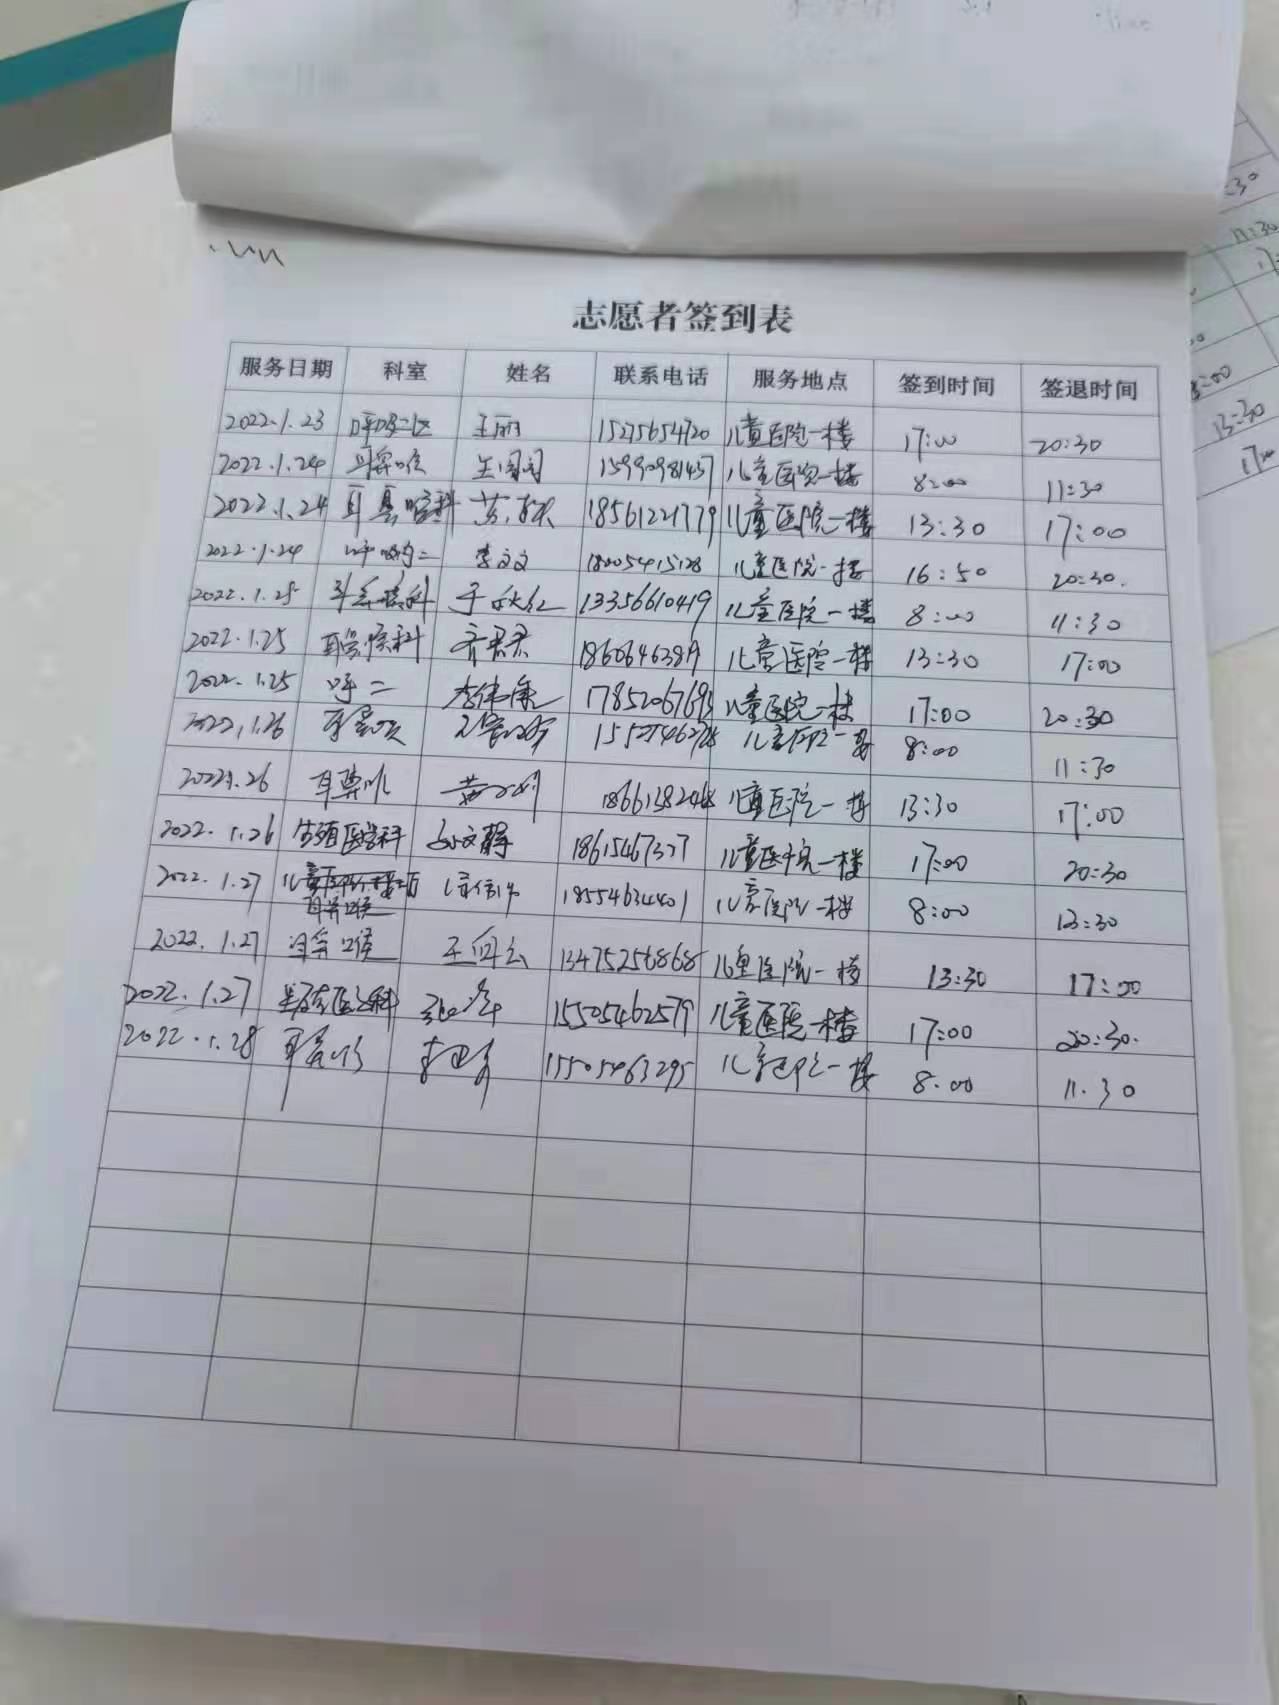 志愿者签到表
服务日期 科室 姓名 联系电话 服务地点 签到时间 签退时间
2022.1.23 呼吸二区 王丽 15275654720 儿童医院一楼 17:00 20:30
2022.1.24 耳鼻喉 15990981437 儿童医院一楼 8:00 11:30
2022.1.24 耳鼻喉科 18561221779 儿童医院一楼 13:30 17:00
2022.1.24 呼吸内二 李文文 18005415128 儿童医院一楼 16:50 20:30.
2022.1.25 耳鼻喉科 于秋红 13356610419 儿童医院一楼 8:00 11:30
2022.1.25 耳鼻喉科 齐君君 儿童医院一楼 13:30 17:00
2022.1.25 呼二 李伟康 儿童医院一楼 17:00 20:30
2022.1.26 耳鼻喉 儿童医院一楼 8:00 11:30
耳鼻喉 儿童医院一楼 13:30 17:00
2022.1.26 生殖医学科 18615467327 儿童医院一楼 17:00 20:30
2022.1.27 18554634401 儿童医院一楼 8:00 13:30
耳鼻喉
2022.1.27 耳鼻喉 13475256868 儿童医院一楼 13:30 17:00
2022.1.27 生殖医学科 15505462579 儿童医院一楼 17:00 20:30.
2022.1.28 耳鼻喉 15505463295 儿童医院一楼 8:00 11:30
:30
11:30
13:30